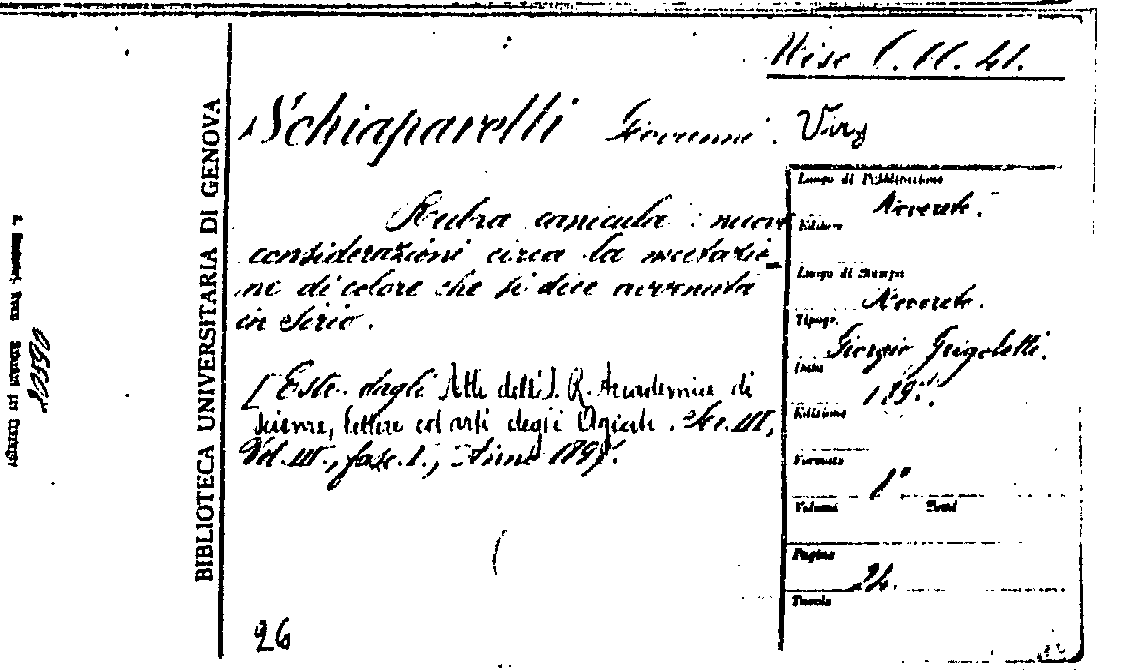 Misc. C. 11. 41.
Schiaparelli Giovanni Virg
Rubra canicula: nuove
considerazioni circa la mutazio-
ne di colore che si dice avvenuta
in Sirio.
[Estr. dagli Atti dell'I. R. Accademia di
Scienze, lettere ed arti degli Agiati. Se. III,
Vol. III, fasc. I., Anno 1897.
26
BIBLIOTECA UNIVERSITARIA DI GENOVA
Luogo di Pubblicazione
Rovereto.
Editore
Luogo di Stampa
Rovereto.
Tipogr.
Giorgio Grigoletti.
Data
1897.
Edizione
Formato
Volumi
Pagine
24.
Tavole